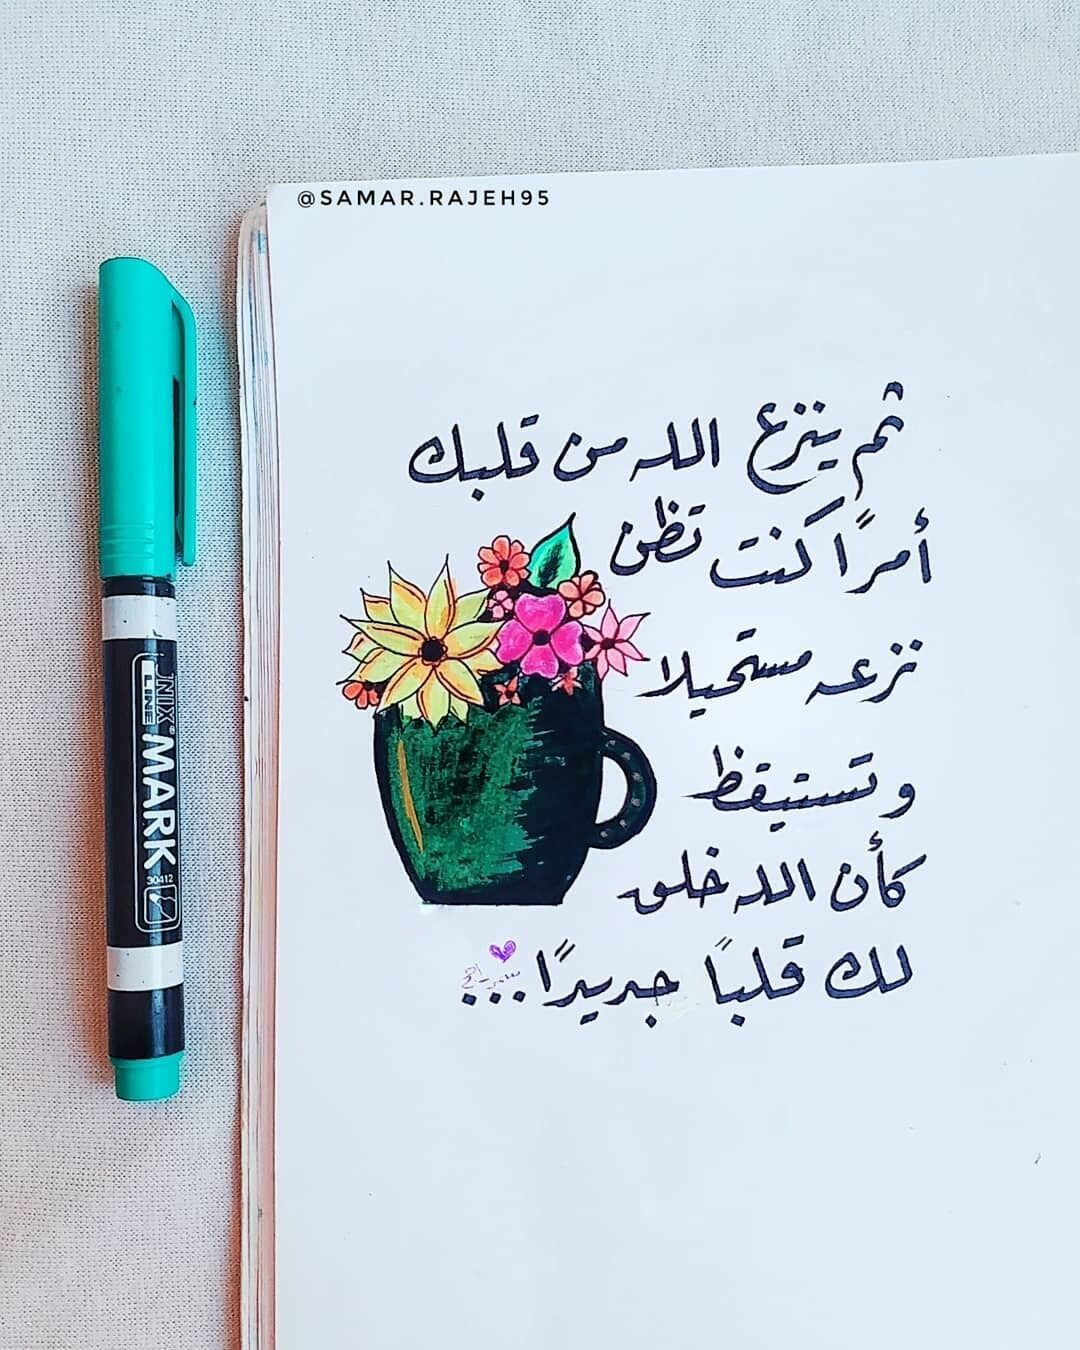 @SAMAR.RAJEH95
ثم ينزع الله من قلبك
أمرًا كنت تظن
نزعه مستحيلا
وتستيقظ
كأن الله خلق
لك قلبًا جديدًا...
LINE
MARK
30412